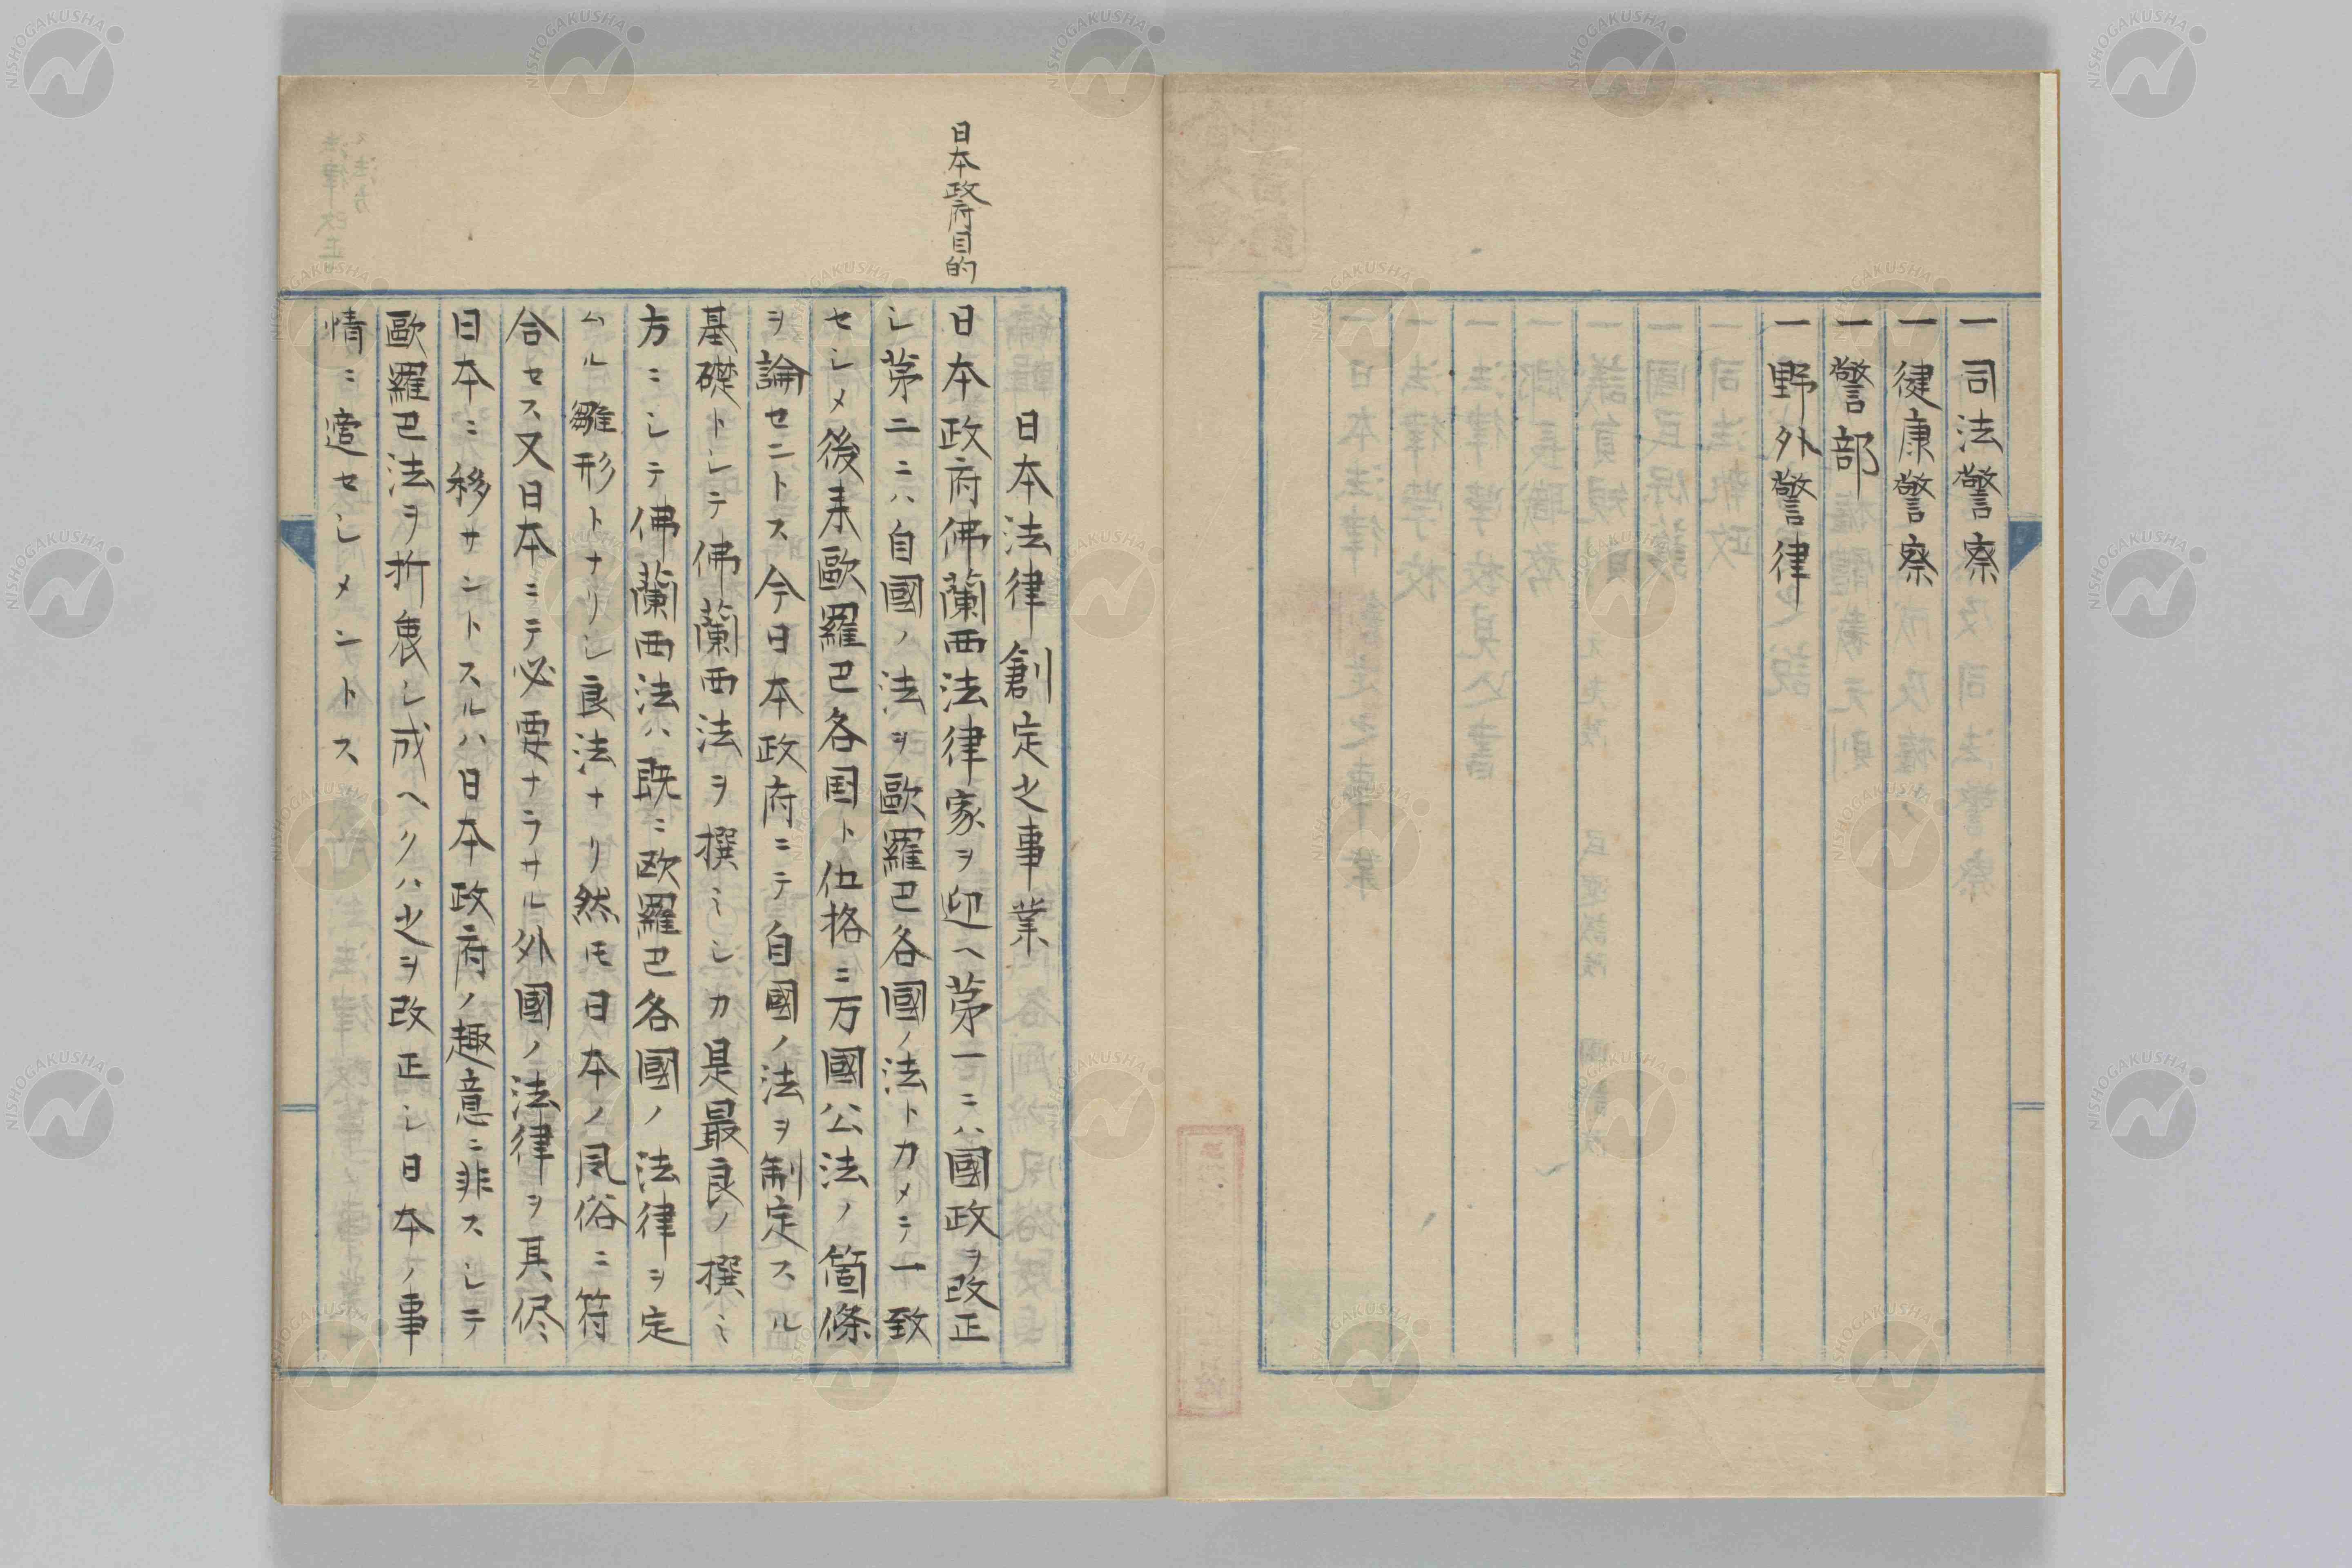 一司法警察
一健康警察
一警部
一野外警律
日本政府目的
日本法律創定之事業
日本政府佛蘭西法律家ヲ迎ヘ第一ニハ國政ヲ改正
シ第二ニハ自國ノ法ヲ歐羅巴各國ノ法トカメテ一致
セシメ後来歐羅巴各国ト仕格ニ万國公法ノ箇條
ヲ論セントス今日本政府ニテ自國ノ法ヲ制定スル
基礎トシテ佛蘭西法ヲ撰ミシカ是最良ノ撰ミ
方ニシテ佛蘭西法ハ既ニ欧羅巴各國ノ法律ヲ定
ムル雛形トナリシ良法ナリ然モ日本ノ風俗ニ符
合セス又日本ニテ必要ナラサル外國ノ法律ヲ其侭
日本ニ移サントスルハ日本政府ノ趣意ニ非スシテ
歐羅巴法ヲ折衷シ成ヘクハ之ヲ改正シ日本ノ事
情ニ適セシメントス
NISHOGAKUSHA